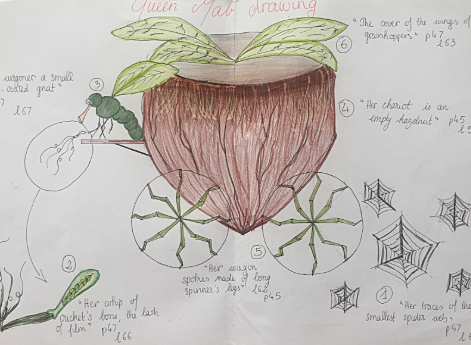 Queen Mab drawing
⑥ "The cover of the wings of
grasshoppers" p47
l63
wagoner a small
coated gnat"
l67
③
④ "Her chariot is an
empty hazelnut" p45
⑤
"Her wagon
spokes made of long
spinner's legs" l62
p45
②
"Her whip of
cricket's bone, the lash
of film" p47
l66
① "Her traces of the
smallest spider web,"
p47